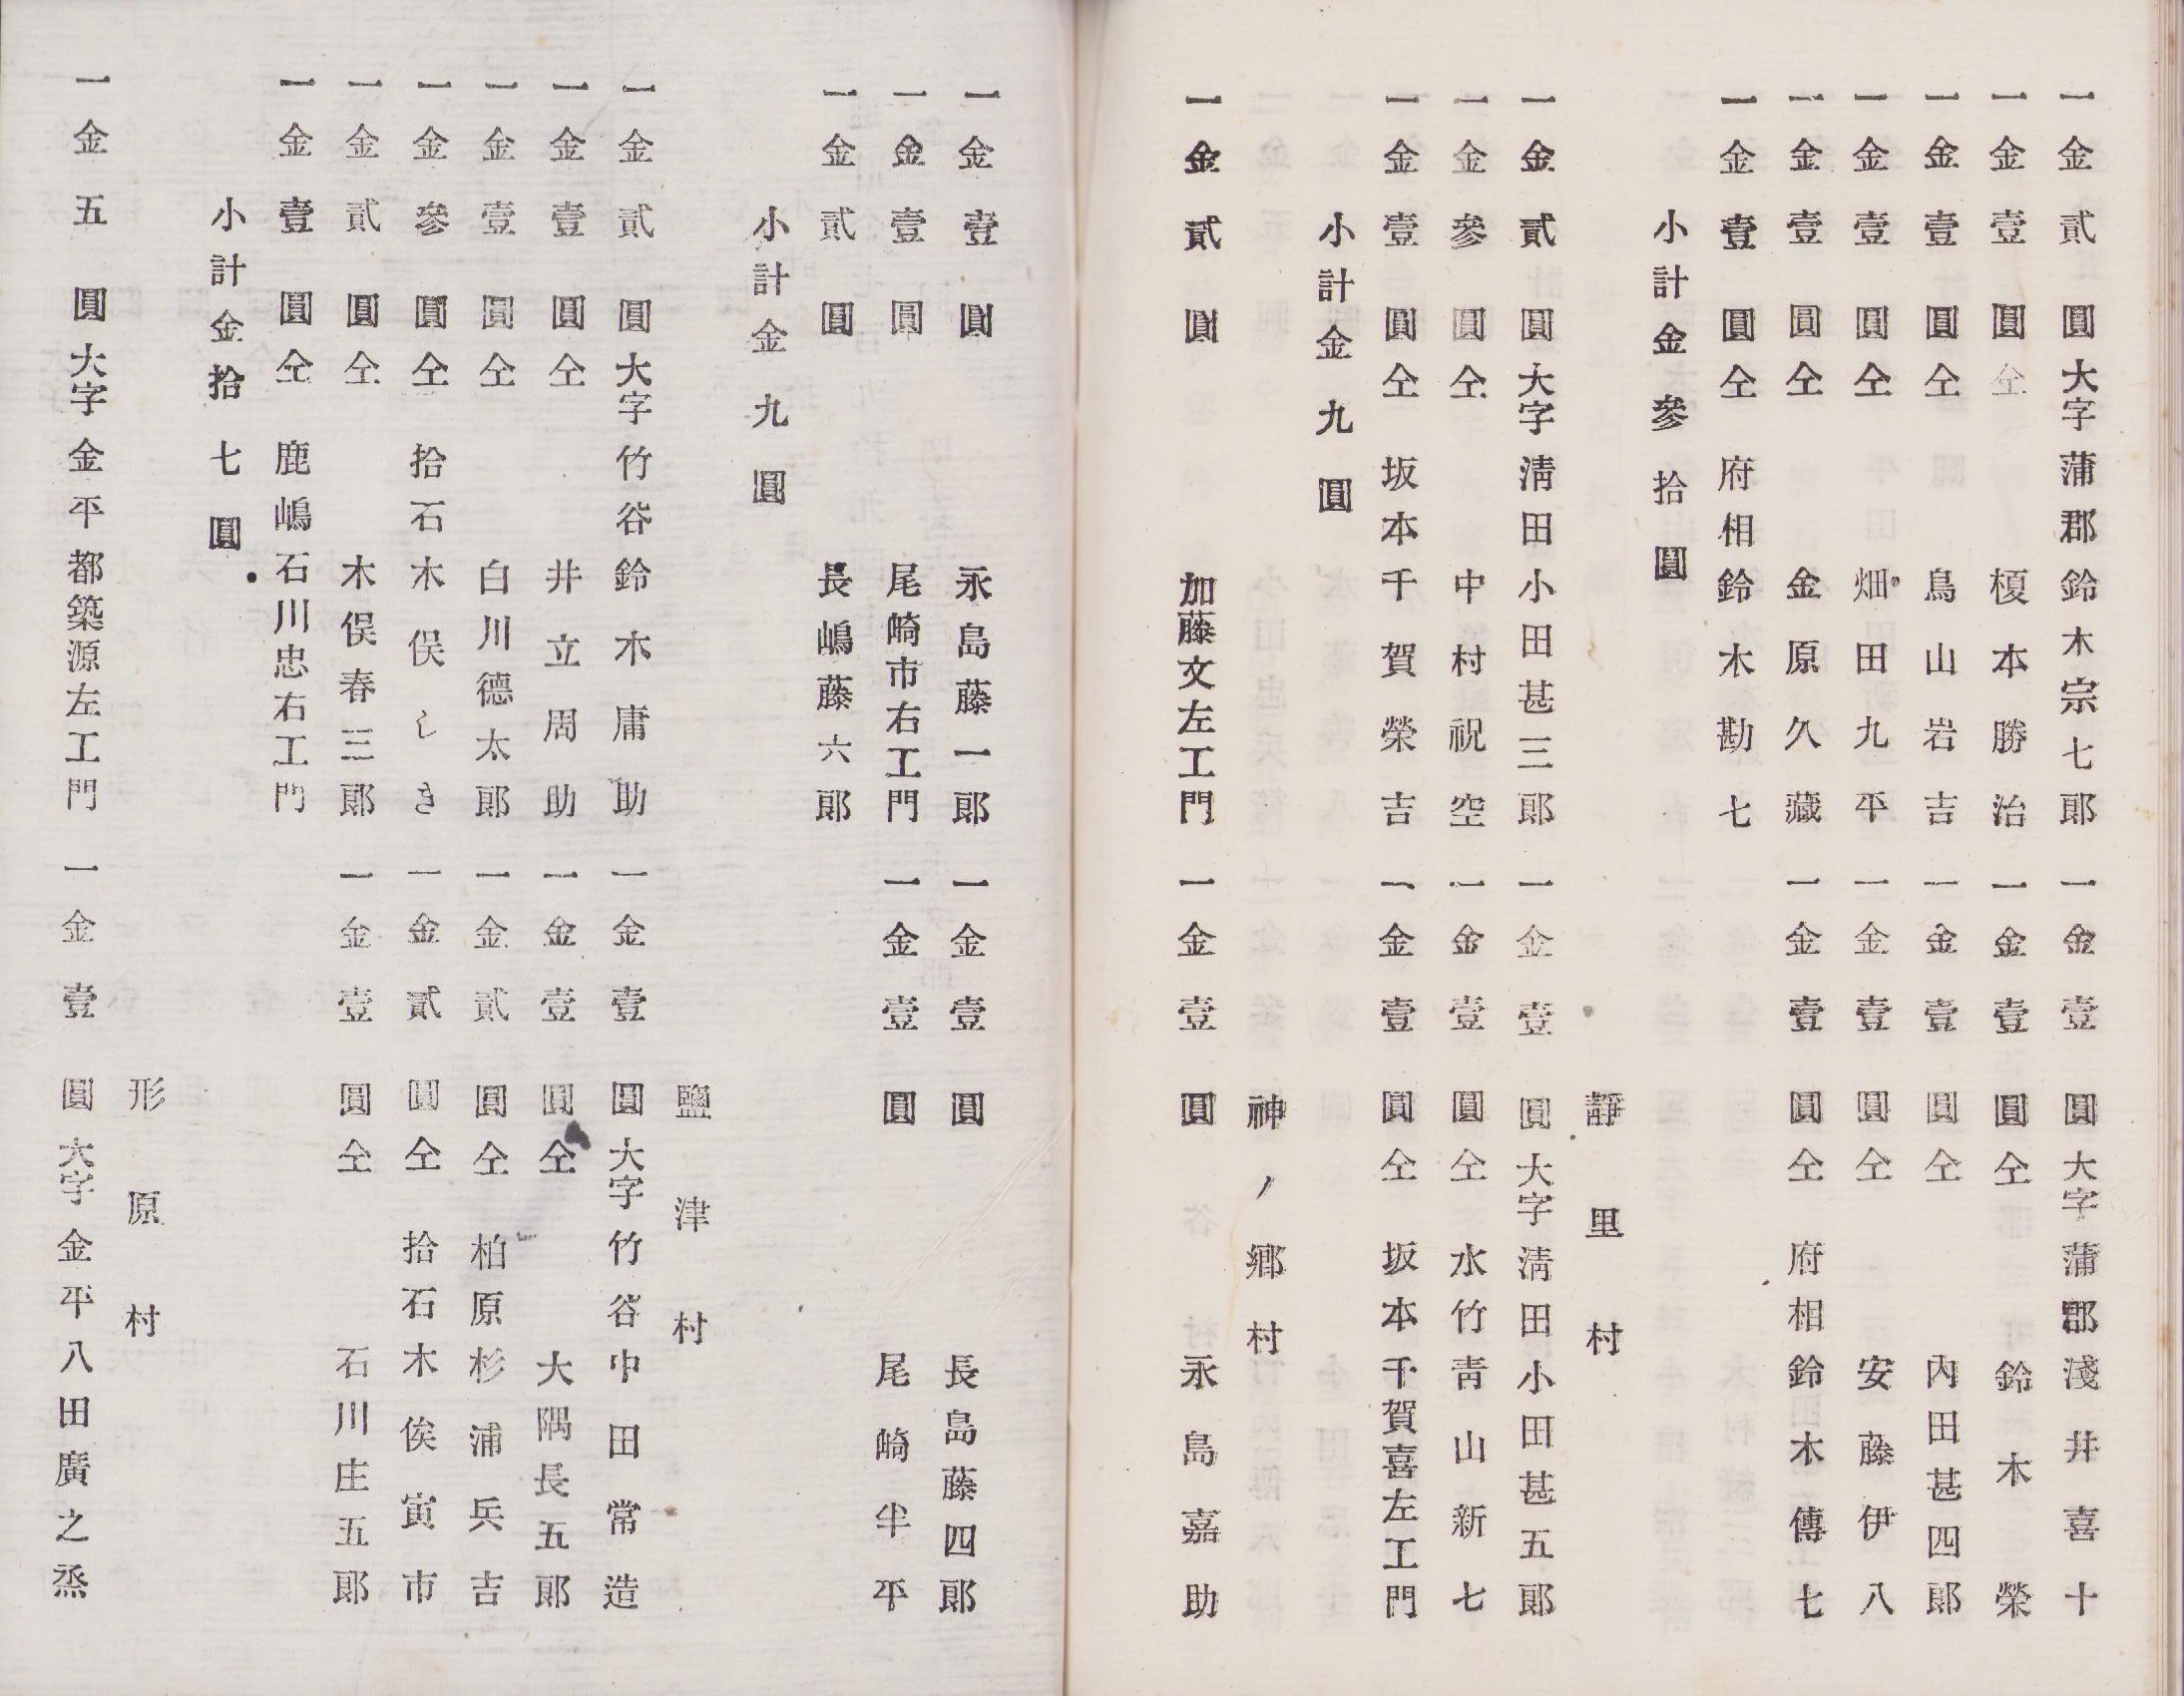 一金貳圓大字蒲郡鈴木宗七郞
一金壹圓大字蒲郡淺井喜十
一金壹圓仝榎本勝治
一金壹圓仝鈴木榮
一金壹圓仝鳥山岩吉
一金壹圓仝內田甚四郞
一金壹圓仝畑田九平
一金壹圓仝安藤伊八
一金壹圓仝金原久藏
一金壹圓仝府相鈴木傳七
一金壹圓仝府相鈴木勘七
小計金參拾圓
靜里村
一金貳圓大字淸田小田甚三郞
一金壹圓大字淸田小田甚五郞
一金參圓仝中村祝空
一金壹圓仝水竹靑山新七
一金壹圓仝坂本千賀榮吉
一金壹圓仝坂本千賀喜左工門
小計金九圓
神ノ鄕村
一金貳圓加藤文左工門
一金壹圓永島嘉助
一金壹圓永島藤一郞
一金壹圓長島藤四郞
一金壹圓尾崎市右工門
一金壹圓尾崎半平
一金貳圓長嶋藤六郞
小計金九圓
鹽津村
一金貳圓大字竹谷鈴木庸助
一金壹圓大字竹谷中田常造
一金壹圓仝井立周助
一金壹圓仝大隅長五郞
一金壹圓仝白川德太郞
一金貳圓仝柏原杉浦兵吉
一金參圓仝拾石木俣しき
一金貳圓仝拾石木俟寅市
一金貳圓仝木俣春三郞
一金壹圓仝石川庄五郞
一金壹圓仝鹿嶋石川忠右工門
小計金拾七圓
形原村
一金五圓大字金平都築源左工門
一金壹圓大字金平八田廣之烝